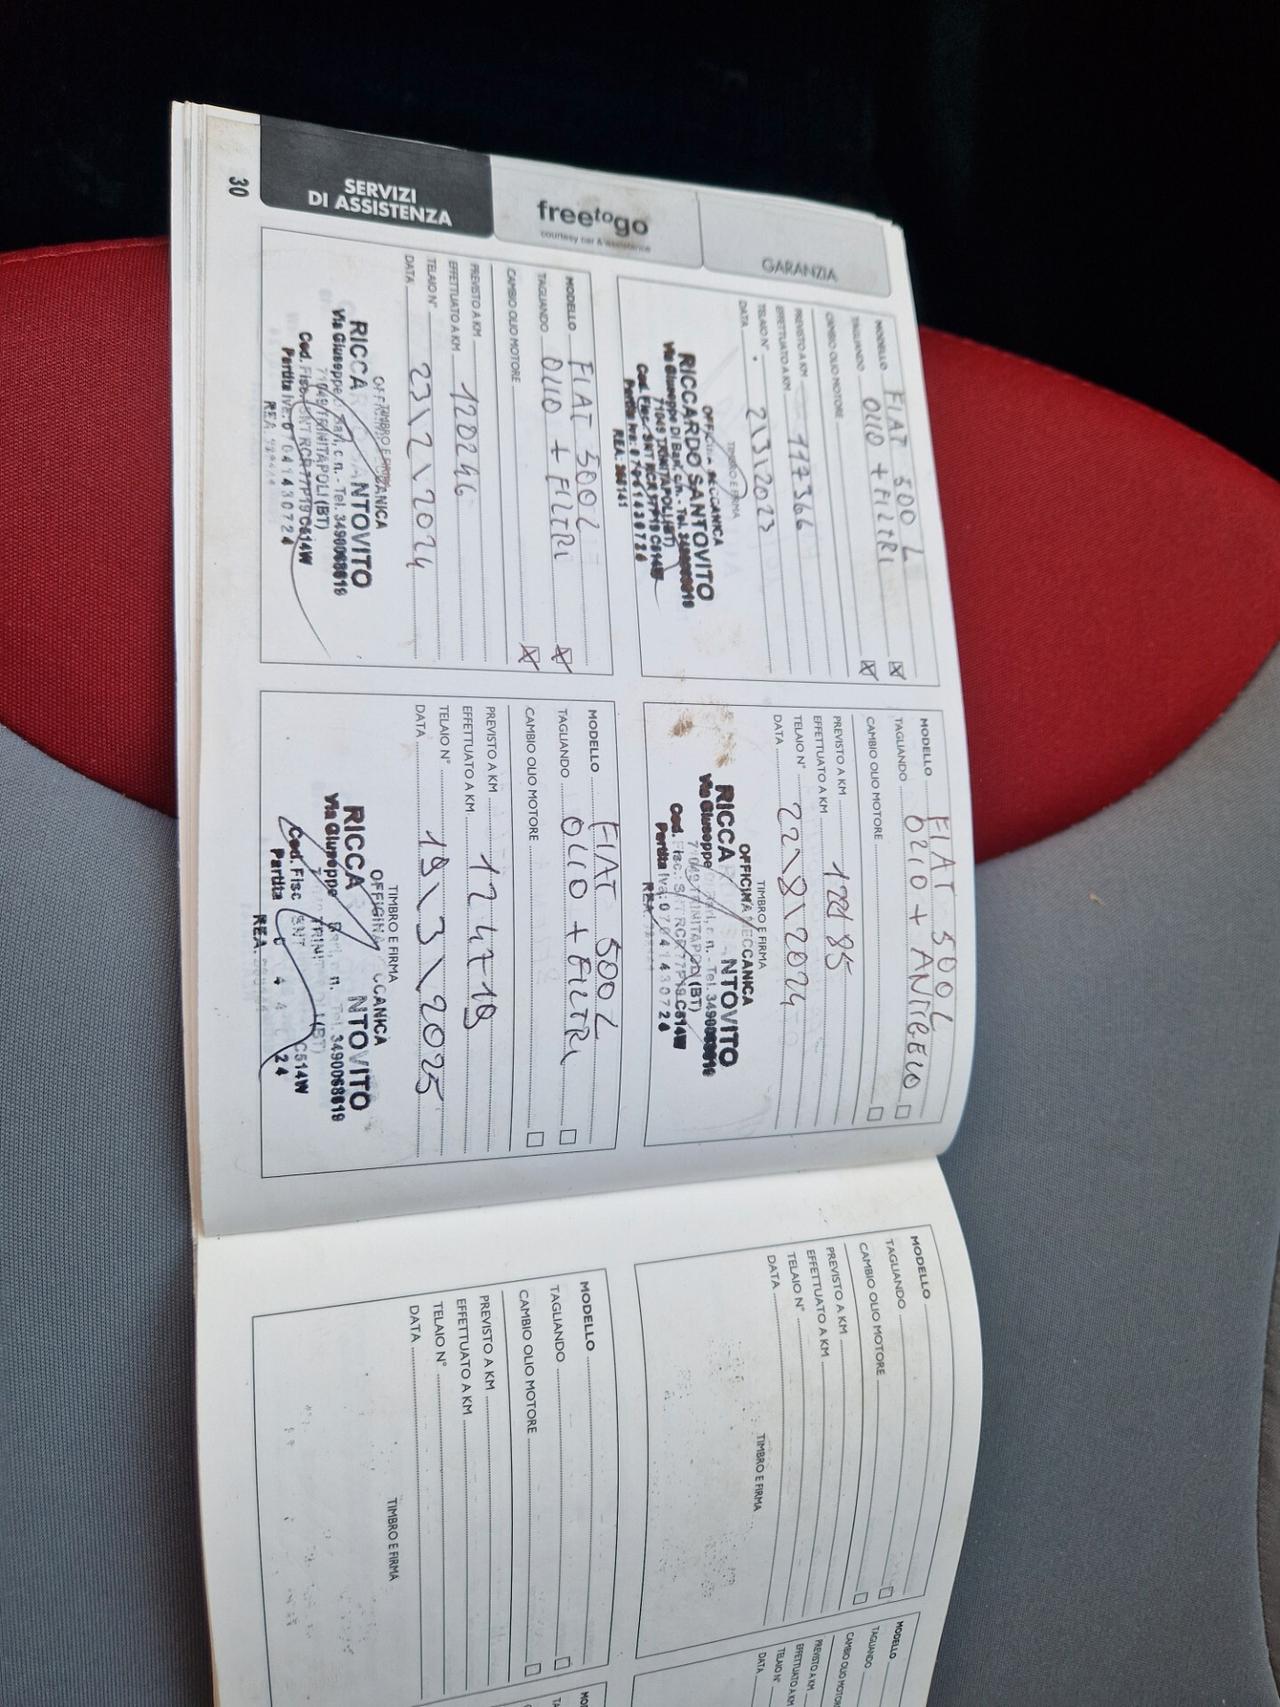 SERVIZI
DI ASSISTENZA
freetogo
courtesy car & assistance
GARANZIA
30
MODELLO FIAT 500 L
TAGLIANDO OLIO + FILTRI
CAMBIO OLIO MOTORE
PREVISTO A KM
EFFETTUATO A KM 117366
TELAIO N°
DATA 2\3\2023
TIMBRO E FIRMA
OFFICINA MECCANICA
RICCARDO SANTOVITO
Via Giuseppe Di Bari, c.n. - Tel. 3490068619
71049 TRINITAPOLI (BT)
Cod. Fisc. SNT RCR 77P19 C514W
Partita Iva: 07041430724
REA:
MODELLO FIAT 500L
TAGLIANDO OLIO + ANTIGELO
CAMBIO OLIO MOTORE
PREVISTO A KM
EFFETTUATO A KM
TELAIO N°
DATA 22\8\2024
TIMBRO E FIRMA
OFFICINA MECCANICA
RICCA NTOVITO
Via Giuseppe Bari, c. n. - Tel. 3490068619
71049 TRINITAPOLI (BT)
Cod. Fisc.: SNT RCR 77P19 C514W
Partita Iva: 07041430724
REA
MODELLO FIAT 500L
TAGLIANDO OLIO + FILTRI
CAMBIO OLIO MOTORE
PREVISTO A KM
EFFETTUATO A KM 120246
TELAIO N°
DATA 23\2\2024
TIMBRO E FIRMA
RICCA NTOVITO
Via Giuseppe Bari, c.n. - Tel. 3490068619
71049 TRINITAPOLI (BT)
Cod. Fisc. SNT RCR 77P19 C514W
Partita Iva: 07041430724
REA
MODELLO FIAT 500L
TAGLIANDO OLIO + FILTRI
CAMBIO OLIO MOTORE
PREVISTO A KM
EFFETTUATO A KM 124719
TELAIO N°
DATA 19\3\2025
TIMBRO E FIRMA
OFFICINA CCANICA
RICCA NTOVITO
Via Giuseppe Bari, n. Tel. 3490068619
TRINI LI (BT)
Cod. Fisc SNT C514W
Partita 24
REA
MODELLO
TAGLIANDO
CAMBIO OLIO MOTORE
PREVISTO A KM
EFFETTUATO A KM
TELAIO N°
DATA
TIMBRO E FIRMA
MODELLO
TAGLIANDO
CAMBIO OLIO MOTORE
PREVISTO A KM
EFFETTUATO A KM
TELAIO N°
DATA
TIMBRO E FIRMA
MODELLO
TAGLIANDO
CAMBIO OLIO MOTOR
PREVISTO A KM
EFFETTUATO A KM
TELAIO N°
DATA